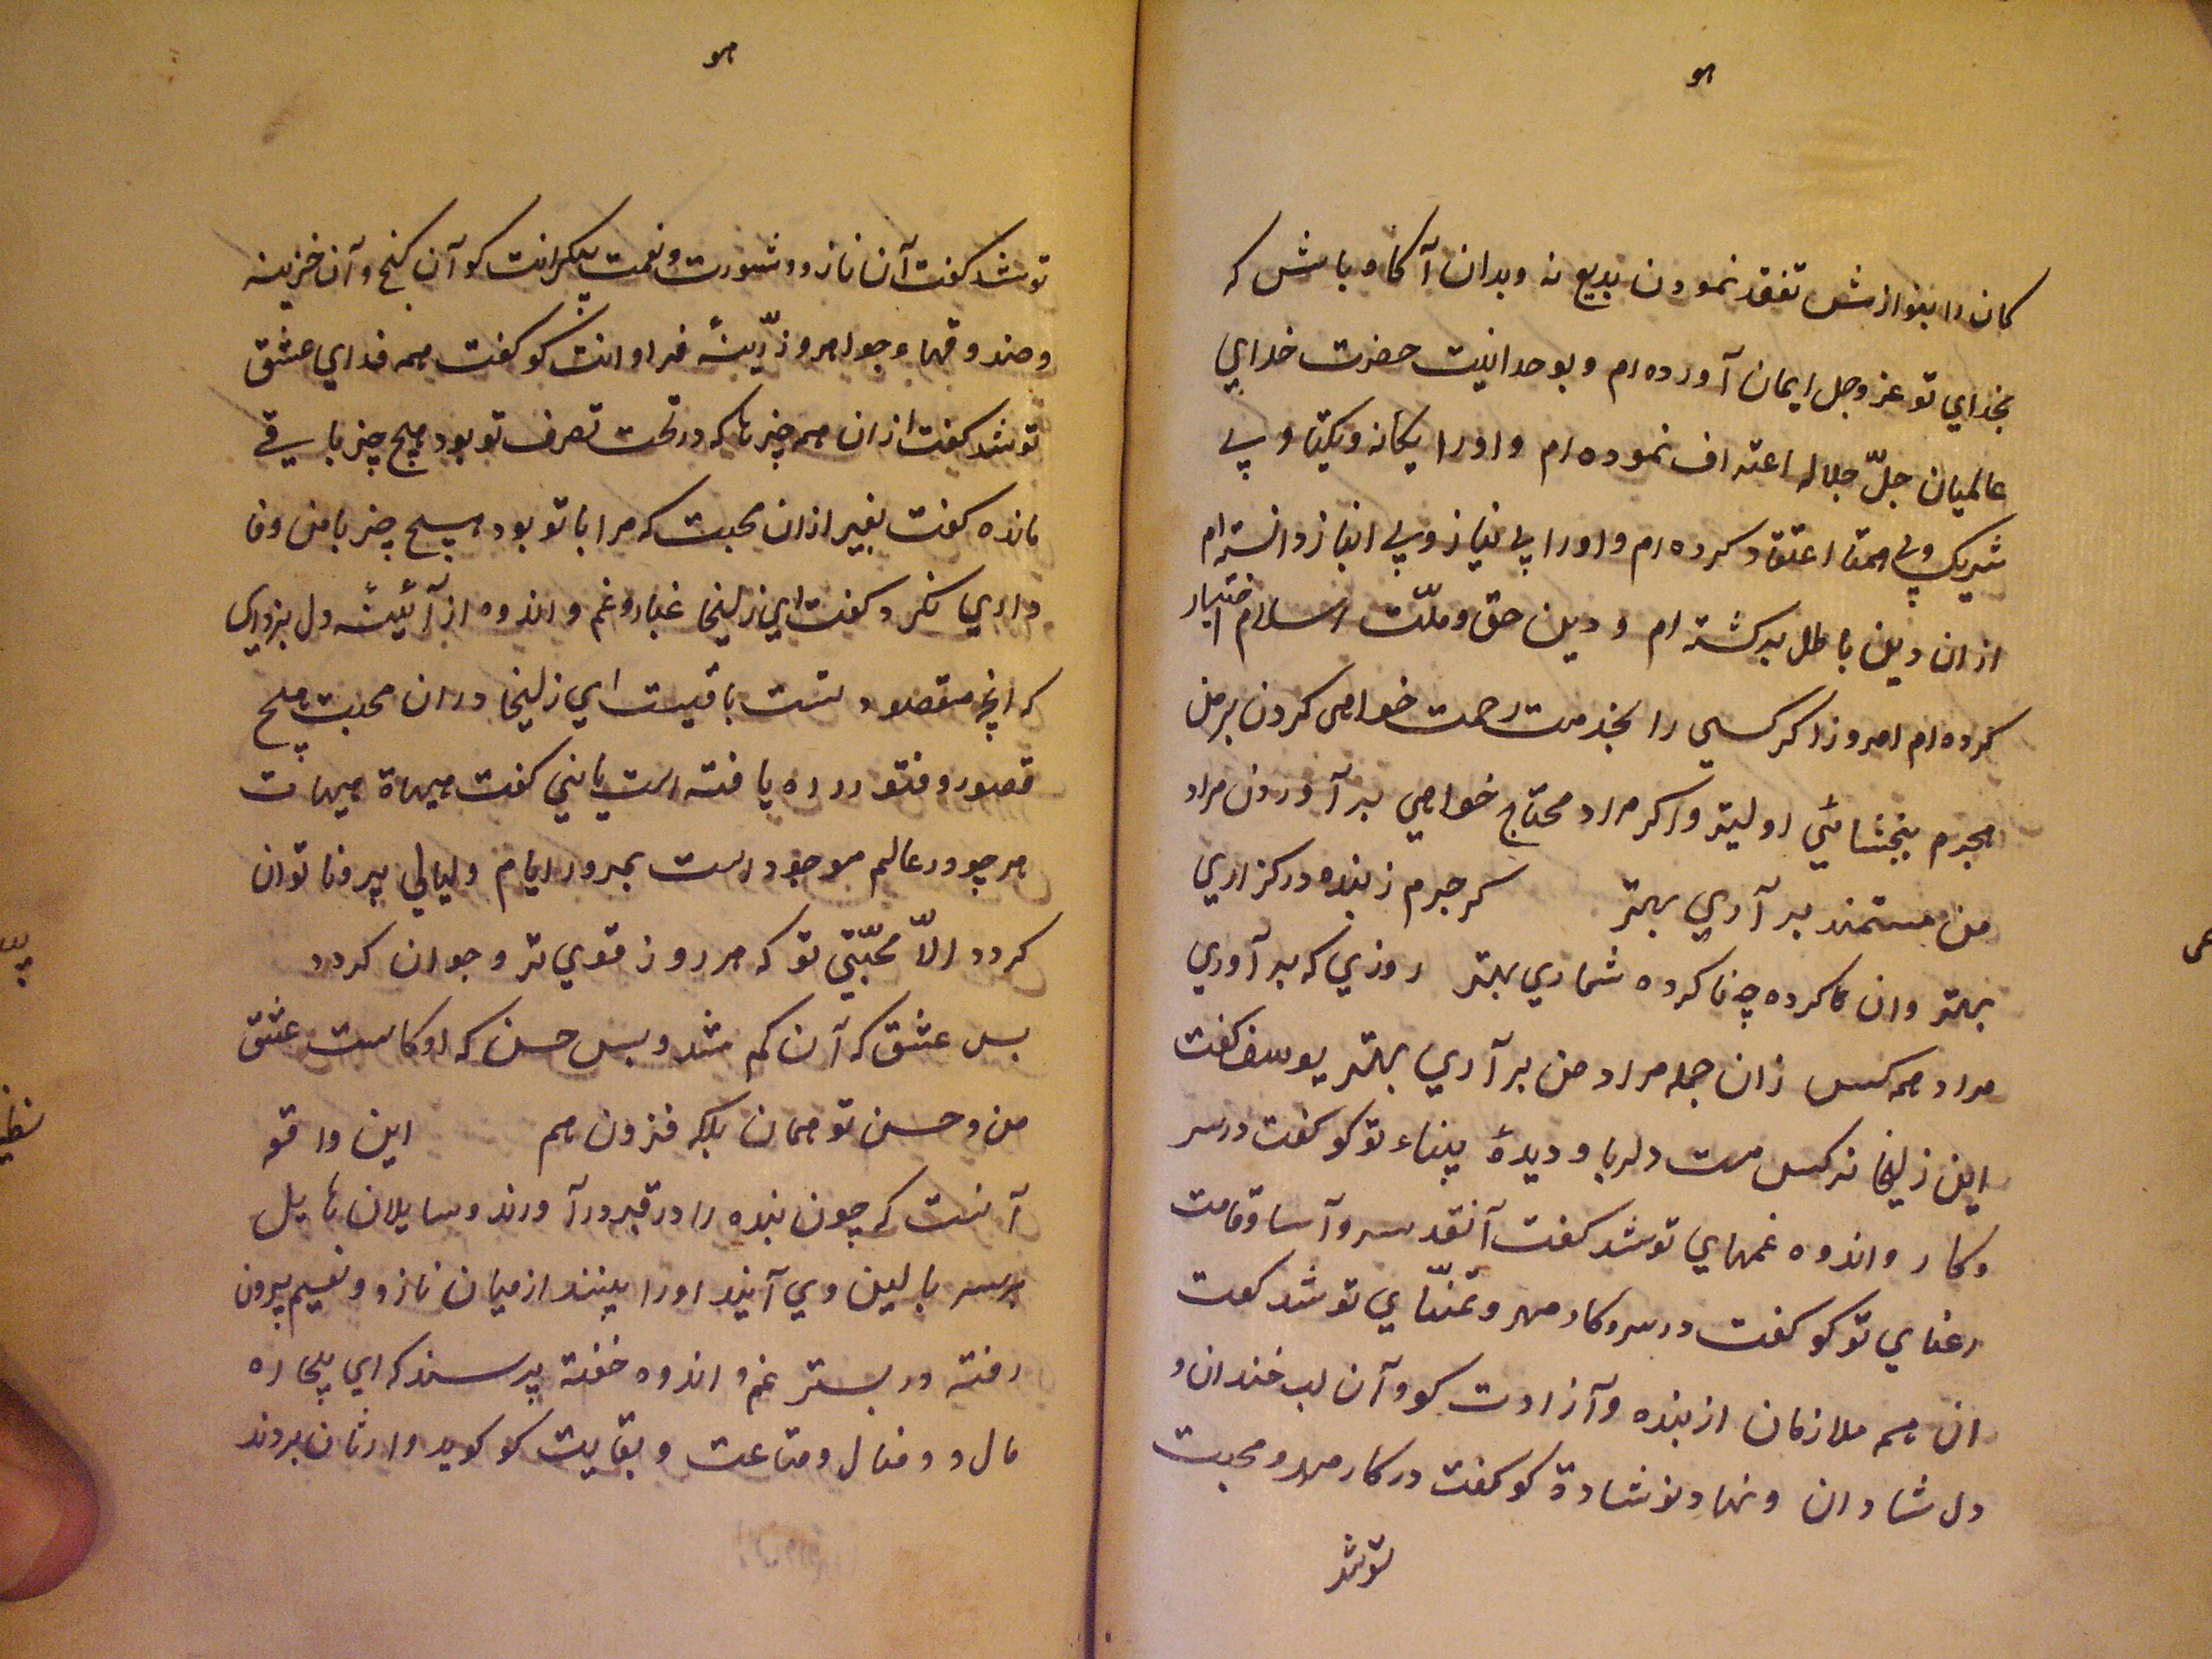 هو
كان را بنوازش تفقد نمودن بديع نه وبدان آكاه باش كه
بخداي تو عز وجل ايمان آورده ام و بوحدانيت حضرت خداي
عالميان جلّ جلاله اعتراف نموده ام و اورا يكانه ويكتا و بي
شريك وبي همتا اعتقاد كرده ام و اورا بي نياز و بي انباز دانسته ام
ازان دين باطل بركشته ام و دين حق و ملّت اسلام اختيار
كرده ام امروز اكر كسي را بخدمت رحمت خواهي كردن بر من
مجرم ببخشائي اوليتر و اكر مراد محتاج خواهي بر آوردن مراد
من مستمند بر آري بهتر كر جرم ز بنده دركزاري
بهتر وان كاكرده چه ناكرده شماري بهتر روزي كه بر آوري
مراد همه كس زان جمله مراد من بر آري بهتر يوسف كفت
اين زليخا نركس مست دلربا و ديدۀ بيناء تو كو كفت درسر
وكار واندوه غمهاي تو شد كفت آنقد سرو آسا وقامت
رعناي تو كو كفت درسر وكار مهر و تمنّاي تو شد كفت
ان همه ملازمان از بنده و آزادت كو و آن لب خندان و
دل شادان و نهاد نوشادۀ كو كفت در كار مهر و محبت
توشد
هو
توشد كفت آن ناز و ونعمت بيكرانت كو آن كنج و آن خزينه
وصندوقها و جواهر و زرّينۀ فراوانت كو كفت همه فداي عشق
توشد كفت ازان همه چيزها كه در تحت تصرف تو بود هيج چيز باقي
مانده كفت بغير ازان محبت كه مرا با تو بود هيج چيز با من وفا
داري نكرد كفت اي زليخا غبار وغم و اندوه از آئينۀ دل بزداي
كه انچه مقصود تست باقيست اي زليخا دران محبت هيج
قصور و فتور راه يافته است يا ني كفت هيهاة هيهات
هرچه در عالم موجود است بمرور ايام و ليالي پير و ناتوان
كردد الّا محبّتي تو كه هر روز قوي تر و جوان كردد
بس عشق كه آن كم شد و بس حسن كه او كاست عشق
من و حسن تو همان بلكه فزون هم اين واقعه
آنست كه چون بنده را در قبر در آورند و سايلان هايل
برسر بالين وي آيند اورا بينند از ميان ناز و ونعيم بيرون
رفته در بستر غم و اندوه خفته پرسند كه اي بيچاره
مال و و منال و متاعت و بقايت كو كويد وارثان بردند